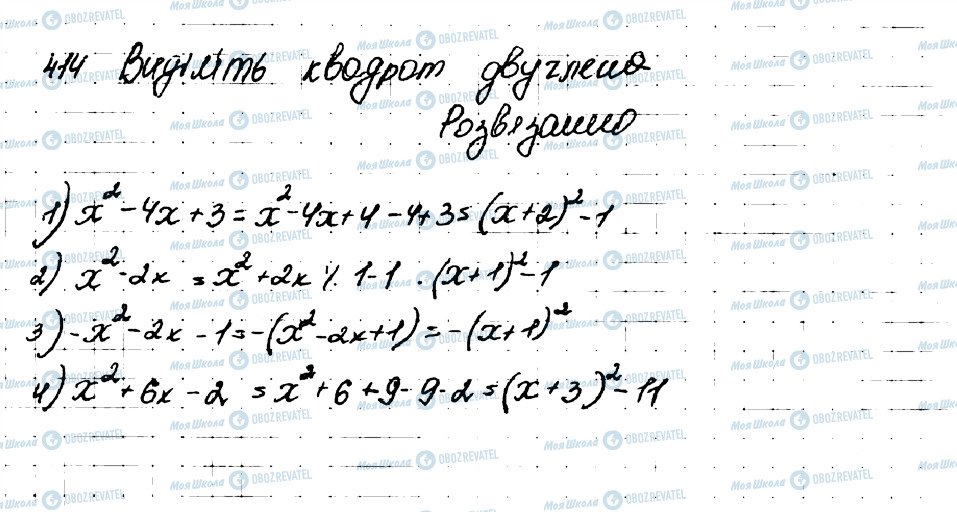 414 Виділіть квадрат двучлена
Розвязанно
1) x² - 4x + 3 = x² - 4x + 4 - 4 + 3 = (x + 2)² - 1
2) x² - 2x = x² + 2x % 1 - 1 · (x + 1)² - 1
3) - x² - 2x - 1 = -(x² - 2x + 1) = -(x + 1)²
4) x² + 6x - 2 = x² + 6 + 9 - 9 - 2 = (x + 3)² - 11